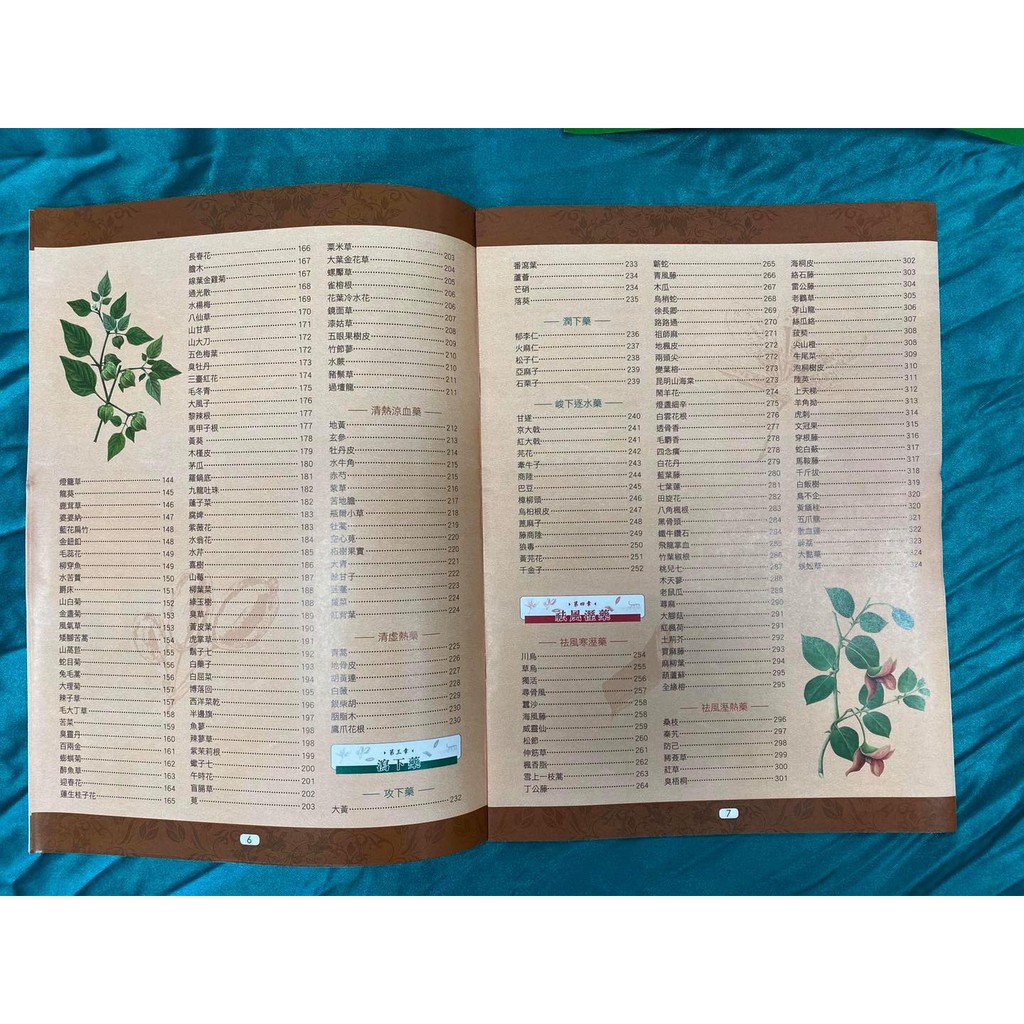 燈籠草 144
龍葵 145
鹿茸草 146
婆婆納 147
藍花扁竹 148
金鈕釦 148
毛蕊花 149
柳穿魚 149
水苦蕒 150
爵床 151
山白菊 152
金盞菊 153
風氣草 153
矮腳苦蒿 154
山萵苣 155
蛇目菊 156
兔毛蒿 156
大理菊 157
辣子草 157
毛大丁草 158
苦菜 159
臭靈丹 160
百兩金 161
蟛蜞菊 162
醉魚草 163
迎春花 164
蓮生桂子花 165
長春花 166
膽木 167
線葉金雞菊 167
通光散 168
水楊梅 169
八仙草 170
山甘草 171
山大刀 172
五色梅葉 172
臭牡丹 173
三臺紅花 174
毛冬青 175
大風子 176
黎辣根 177
馬甲子根 177
黃葵 178
木槿皮 179
茅瓜 180
羅鍋底 181
九龍吐珠 182
蓬子菜 182
腐婢 183
紫薇花 183
水翁花 184
水芹 185
喜樹 186
山莓 187
柳葉菜 188
綠玉樹 188
臭草 189
黃皮葉 190
虎掌草 191
鬍子七 192
白藥子 193
白屈菜 194
博落回 195
西洋菜乾 196
半邊旗 197
魚蓼 198
辣蓼草 198
紫茉莉根 198
蠍子七 199
午時花 200
盲腸草 201
莧 202
203
粟米草 203
大葉金花草 204
螺厴草 204
雀榕根 205
花葉冷水花 206
鏡面草 206
漆姑草 207
五眼果樹皮 208
竹節蓼 209
水蕨 210
豬鬃草 211
過壇龍 211
清熱涼血藥
地黃 212
玄參 213
牡丹皮 214
水牛角 215
赤芍 215
紫草 216
苦地膽 217
瓶爾小草 218
牡蒿 219
空心莧 220
220
大青 221
餘甘子 222
223
224
紅背葉 224
清虛熱藥
青蒿 225
地骨皮 226
胡黃連 227
白薇 228
銀柴胡 229
胭脂木 230
鷹爪花根 230
第三章
瀉下藥
攻下藥
大黃 232
6
番瀉葉 233
蘆薈 234
芒硝 234
落葵 235
潤下藥
郁李仁 236
火麻仁 237
松子仁 238
亞麻子 239
石栗子 239
峻下逐水藥
甘遂 240
京大戟 241
紅大戟 241
芫花 242
牽牛子 243
商陸 244
巴豆 245
樟柳頭 246
烏桕根皮 247
蓖麻子 248
藤商陸 249
狼毒 250
黃芫花 251
千金子 252
第四章
祛風溼藥
祛風寒溼藥
川烏 254
草烏 255
獨活 256
尋骨風 257
蠶沙 258
海風藤 258
威靈仙 259
松節 260
伸筋草 261
楓香脂 262
雪上一枝蒿 263
丁公藤 264
蘄蛇 265
青風藤 266
木瓜 267
烏梢蛇 268
徐長卿 269
路路通 270
祖師麻 271
地楓皮 272
兩頭尖 272
變葉榕 273
昆明山海棠 273
鬧羊花 274
燈盞細辛 275
白雲花根 276
透骨香 277
毛麝香 277
四念癀 278
白花丹 279
藍葉藤 280
七葉蓮 281
田旋花 282
八角楓根 283
黑骨頭 284
鐵牛鑽石 284
飛龍掌血 285
竹葉椒根 286
桃兒七 287
木天蓼 288
老鼠瓜 288
蕁麻 289
大腳菇 290
紅楓荷 291
土荊芥 292
買麻藤 293
麻柳葉 294
葫蘆蘚 295
全緣榕 295
祛風溼熱藥
桑枝 296
秦艽 297
防己 298
豨薟草 299
葒草 300
臭梧桐 301
海桐皮 302
絡石藤 303
雷公藤 304
老鸛草 305
穿山龍 306
絲瓜絡 307
菝葜 308
尖山橙 308
牛尾菜 309
泡桐樹皮 310
陸英 311
上天梯 312
羊角拗 313
虎刺 314
文冠果 315
穿根藤 316
蛇白蘞 317
馬鞍藤 318
千斤拔 319
白飯樹 319
鳥不企 320
黃鱔藤 320
五爪龍 321
322
323
324
324
7